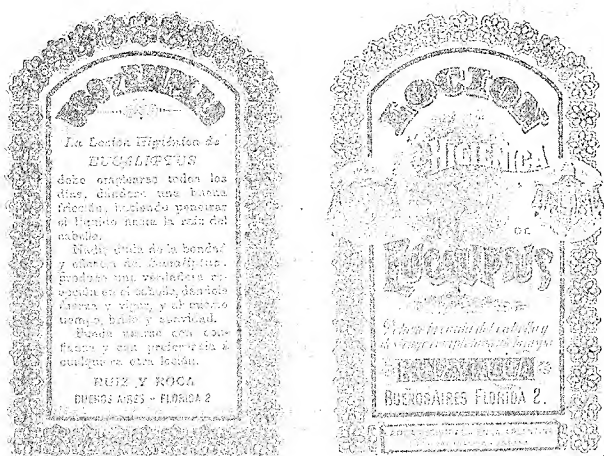 La Locion Higiénica de
EUCALIPTUS
debe emplearse todos los
dias, dándose una buena
friccion, haciendo penetrar
el líquido hasta la raiz del
cabello.
Nadie duda de la bondad
y eficacia del Eucaliptus,
produce una verdadera
en el cabello, dándole
fuerza y vigor, y al mismo
tiempo, brillo y suavidad.
Puede usarse con con-
fianza y con preferencia á
cualquiera otra locion.
RUIZ Y ROCA
BUENOS AIRES - FLORIDA 2
LOCION
HIGIÉNICA
DE
EUCALIPTUS
RUIZ Y ROCA
BUENOS AIRES FLORIDA 2.